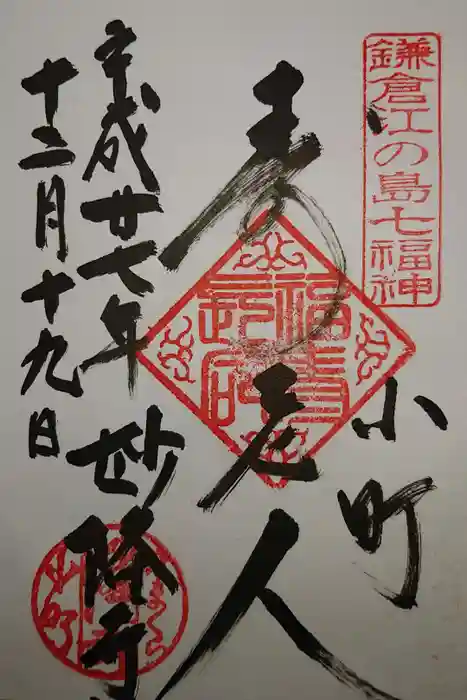 鎌倉江の島七福神
小町
寿老人
平成廿七年
十二月十九日
妙隆寺